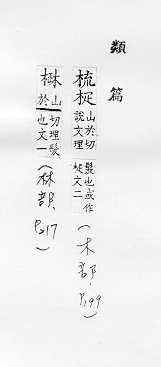 類篇
梳
山於切
說文理
髮也或作
文二
(木部. P.199)
山於
切理髮
也文一
(林部 P.217)